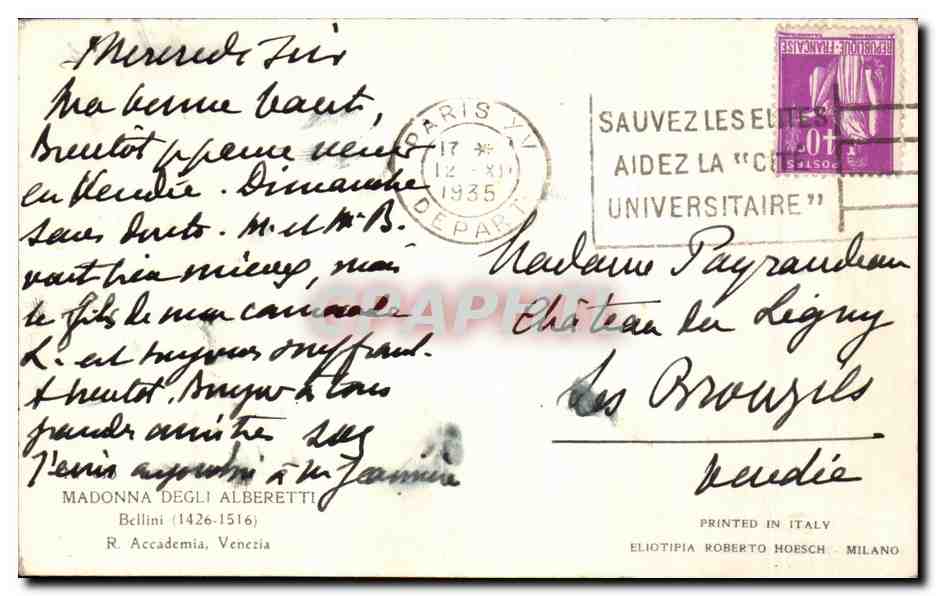 Mercredi soir
Ma bonne tante,
Bientôt je pense venir
en Vendée. Dimanche
sans doute. M. et Me B.
vont bien mieux, mais
le fils de mon camarade
L. est toujours souffrant.
A bientôt. Bonjour à tous
grandes amitiés
J'écris aujourd'hui à
MADONNA DEGLI ALBERETTI
Bellini (1426-1516)
R. Accademia, Venezia
PARIS XV
17 *
12 - XI
1935
DÉPART
SAUVEZ LES ELITES
AIDEZ LA "CITÉ
UNIVERSITAIRE"
REPUBLIQUE FRANÇAISE
POSTES
1F40
Madame Payraudeau
Château du Ligny
Les Brouzils
Vendée
PRINTED IN ITALY
ELIOTIPIA ROBERTO HOESCH - MILANO
GRAPHTIL